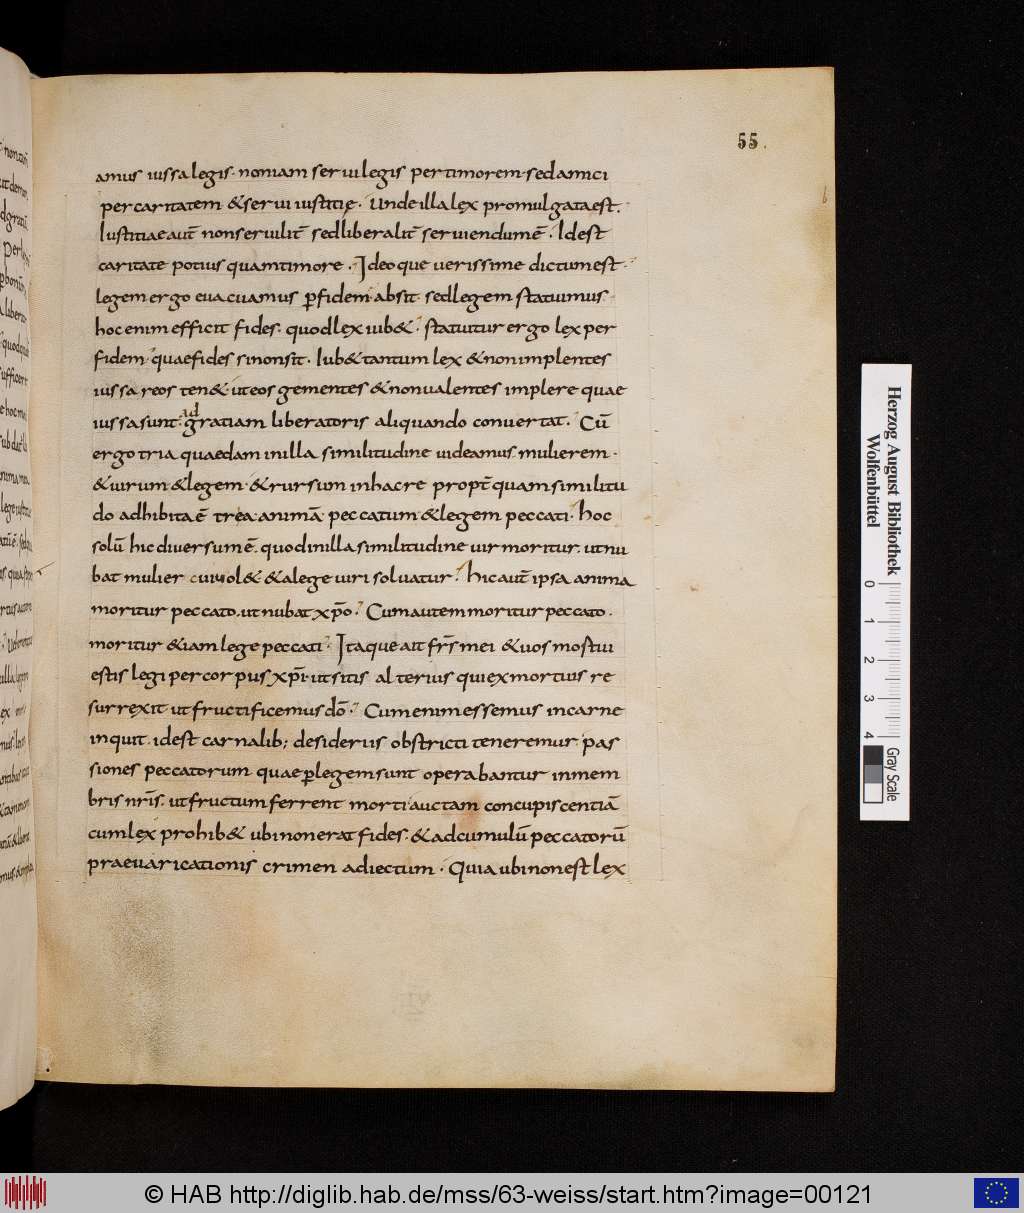 55.
amus iussa legis· non iam serui legis per timorem· sed amici
per caritatem & serui iustitię· Unde illa lex promulgata est.
Iustitiae aut̄ non seruilit̄ sed liberalit̄ seruiendum ē· Idest
caritate potius quam timore· Ideoque uerissime dictum est·
legem ergo euacuamus p̄ fidem· absit· sed legem statuimus·
hoc enim efficit fides· quod lex iub&· statuitur ergo lex per
fidem· quae fides si non sit· iub& tantum lex & non implentes
iussa reos ten&· ut eos gementes & non ualentes implere quae
iussa sunt· ad gratiam liberatoris aliquando conuertat· Cū
ergo tria quaedam in illa similitudine uideamus· mulierem·
& uirum & legem· & rursum in hac re propt̄ quam similitu
do adhibita ē tria· animā· peccatum & legem peccati· hoc
solū hic diuersum ē· quod in illa similitudine uir moritur· ut nu
bat mulier cui uol& & a lege uiri soluatur· hic aut̄ ipsa anima
moritur peccato· ut nubat xp̄o· Cum autem moritur peccato·
moritur & iam lege peccati· Itaque ait fr̄s mei & uos mortui
estis legi per corpus xp̄i· ut sitis alterius qui ex mortuis re
surrexit ut fructificemus dō· Cum enim essemus in carne
inquit· idest carnalib; desideriis obstricti teneremur pas
siones peccatorum quae p̄ legem sunt operabantur in mem
bris nr̄is· ut fructum ferrent morti· auctam concupiscentiā
cum lex prohib& ubi non erat fides· & ad cumulū peccatorū
praeuaricationis crimen adiectum· Quia ubi non est lex
Herzog August Bibliothek
Wolfenbüttel
0 1 2 3 4
Gray Scale
© HAB http://diglib.hab.de/mss/63-weiss/start.htm?image=00121